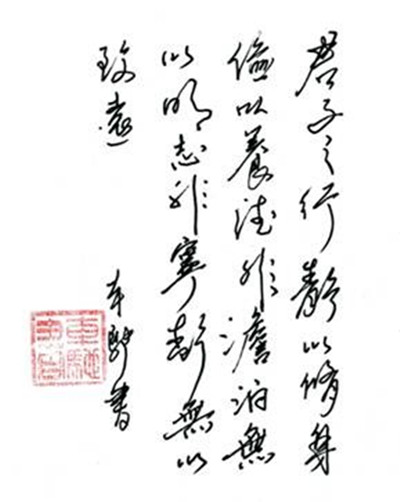 君子之行靜以修身
儉以養德非澹泊無
以明志非寧靜無以
致遠
车驰書